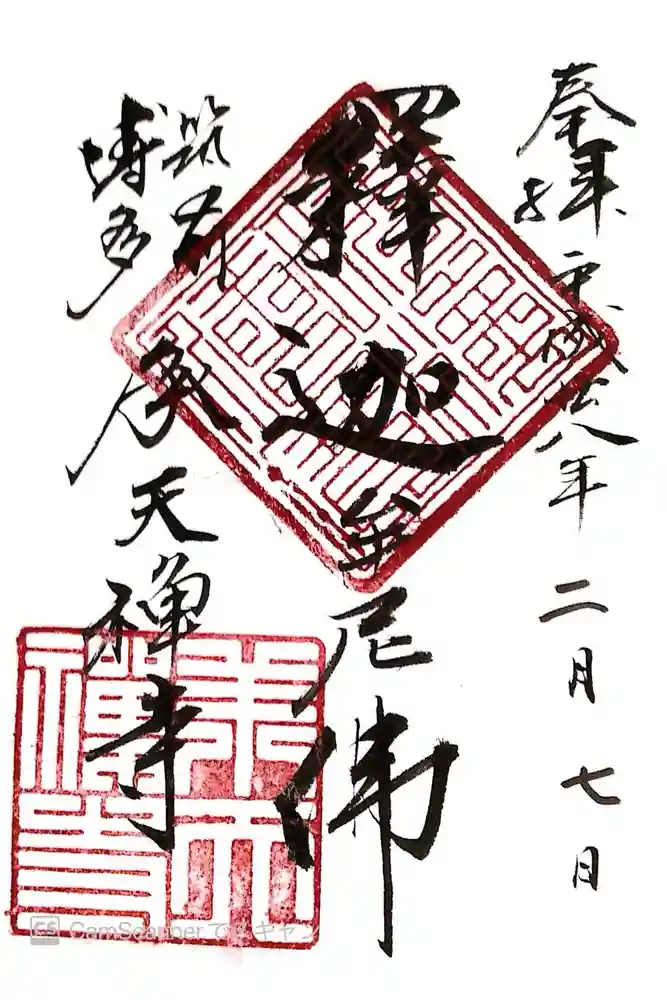 奉拝
八年 二月 七日
釋迦牟尼佛
筑前
博多
承天禅寺
承天
禅寺
CS CamScanner でスキャン